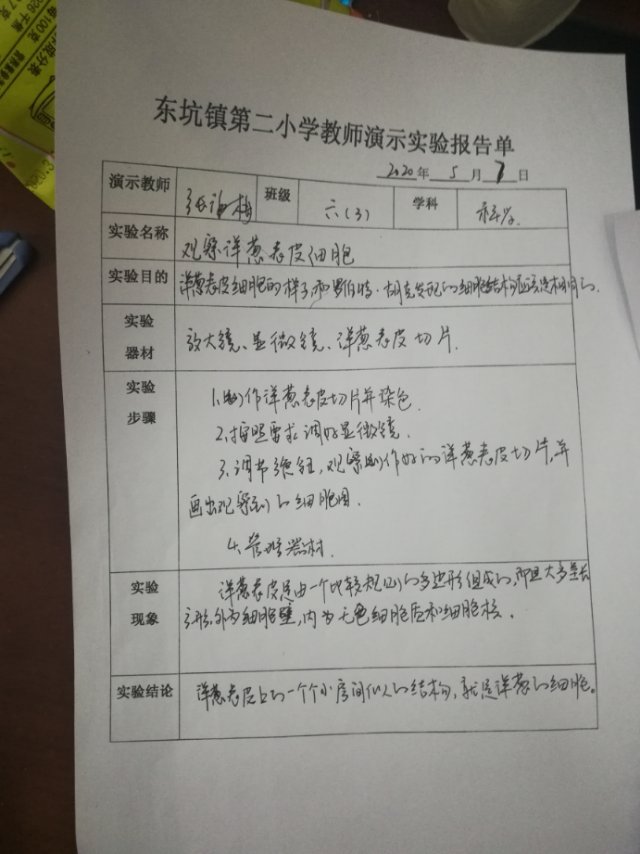 东坑镇第二小学教师演示实验报告单
2020年 5 月 7 日
演示教师 张 梅 班级 六(3) 学科 科学
实验名称 观察洋葱表皮细胞
实验目的 洋葱表皮细胞的样子和罗伯特·胡克发现的细胞结构应该是相同的.
实验器材 放大镜、显微镜、洋葱表皮切片.
实验步骤 1.制作洋葱表皮切片并染色.
2.按照要求调好显微镜.
3.调节旋钮,观察制作好的洋葱表皮切片,并
画出观察到的细胞图.
4.整理器材.
实验现象 洋葱表皮是由一个比较规则的多边形组成的,而且大多呈长
方形.外为细胞壁,内为无色细胞质和细胞核.
实验结论 洋葱表皮上的一个个小房间似的结构,就是洋葱的细胞。